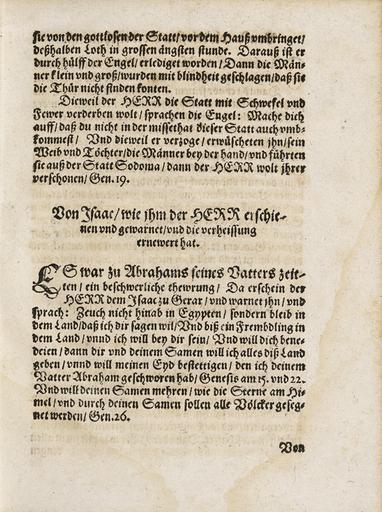 sie von den gottlosen der Statt/ vor dem Hauß vmbringet/
deßhalben Loth in grossen ängsten stunde. Darauß ist er
durch hülff der Engel/ erlediget worden/ Dann die Män-
ner klein vnd groß/ wurden mit blindheit geschlagen/ daß sie
die Thür nicht finden konten.
Dieweil der HERR die Statt mit Schwefel vnd
Fewer verderben wolt/ sprachen die Eugel: Mache dich
auff/ daß du nicht in der missethat dieser Statt auch vmb-
kommest/ Vnd dieweil er verzoge/ erwüscheten jhn/ sein
Weib vnd Töchter/ die Männer bey der hand/ vnd führten
sie auß der Statt Sodoma/ dann der HERR wolt jhrer
verschonen/ Gen. 19.
Von Isaac/ wie jhm der HERR erschie-
nen vnd gewarnet/ vnd die verheissung
ernewert hat.
ES war zu Abrahams seines Vatters zeit-
ten/ ein beschwerliche thewrung/ Da erschein der
HERR dem Isaac zu Gerar/ vnd warnet jhn/ vnd
sprach: Zeuch nicht hinab in Egypten/ sondern bleib in
dem Land/ daß ich dir sagen wil/ Vnd biß ein Frembdling in
dem Land/ vnnd ich will bey dir sein/ Vnd will dich bene-
deien/ dann dir vnd deinem Samen will ich alles diß Land
geben/ vnnd will meinen Eyd bestettigen/ den ich deinem
Vatter Abraham geschworen hab/ Genesis am 15. vnd 22.
Vnd will deinen Samen mehren/ wie die Sterne am Hi-
mel/ vnd durch deinen Samen sollen alle Völcker geseg-
net werden/ Gen. 26.
Von